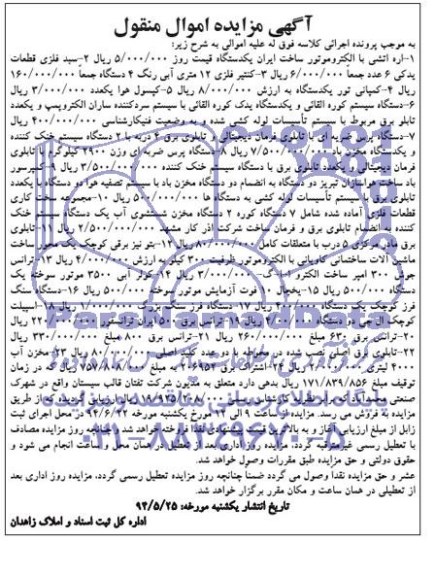 آگهی مزایده اموال منقول
به موجب پرونده اجرائی کلاسه فوق له علیه اموالی به شرح زیر:
۱-اره آتشی با الکتروموتور ساخت ایران یکدستگاه قیمت روز ۵/۰۰۰/۰۰۰ ریال ۲-سبد فلزی قطعات
یدکی ۶ عدد جمعاً ۶/۰۰۰/۰۰۰ ریال ۳-کنتیر فلزی ۱۲ متری آبی رنگ ۴ دستگاه جمعاً ۱۶۰/۰۰۰/۰۰۰
ریال ۴-کمپانی تور یکدستگاه به ارزش ۸/۰۰۰/۰۰۰ ریال ۵-کپسول هوا یکعدد ۳/۰۰۰/۰۰۰ ریال
۶-دستگاه سیستم کوره القائی و یکدستگاه یدک کوره القائی با سیستم سردکننده سازان الکترویمپ و یکعدد
تابلو برق مربوط با سیستم تأسیسات لوله کشی شده در وضعیت فنیکارشناسی ۴۰۰/۰۰۰/۰۰۰ ریال
۷-دستگاه پرس ضربه ای با تابلوی فرمان دیجیتالی و تابلوی برق ۴ دربه با ۲ دستگاه سیستم خنک کننده
و یکدستگاه مخزن باد ۷/۵۰۰/۰۰۰/۰۰۰ ریال ۸-دستگاه پرس ضربه ای وزن ۲۹۰۰ کیلوگرم با تابلوی
فرمان دیجیتالی و یکعدد تابلوی برق با دستگاه سیستم خنک کننده ۳/۵۰۰/۰۰۰/۰۰۰ ریال ۹-کمپرسور
باد ساخت هواسازان تبریز دو دستگاه به انضمام دو دستگاه مخزن باد با سیستم تصفیه هوا دو دستگاه با یکعدد
تابلوی برق و سیستم تأسیسات لوله کشی به دستگاه ها ۵۰۰/۰۰۰/۰۰۰ ریال ۱۰-مجموعه سخت کاری
قطعات فلزی آماده شده شامل ۷ دستگاه کوره ۲ دستگاه مخزن شستشوی آب یک دستگاه سیستم خنک
کننده به انضمام تابلوی برق و فرمان ساخت شرکت آذر کار مشهد ۲/۵۰۰/۰۰۰/۰۰۰ ریال ۱۱-تابلوی
برق مادر مرکزی ۵ درب با متعلقات کامل ۸۰۰/۰۰۰/۰۰۰ ریال ۱۲-بتو نیز برقی کوچک یک محور ساخت
ماشین آلات ساختمانی کاویانی با الکتروموتور ظرفیت ۳۰۰ کیلو به ارزش ۴/۰۰۰/۰۰۰ ریال ۱۳-ترانس
جوش ۳۰۰ آمپر ساخت الکترو ۳/۰۰۰/۰۰۰ ریال ۱۴-کولر آبی ۳۵۰۰ موتور سوخته یک
دستگاه ۵۰۰/۰۰۰ ریال ۱۵-یخچال ۱۰ فوت آزمایش موتور سوخته ۵۰۰/۰۰۰ ریال ۱۶-دستگاه سنگ
فرز کوچک یک دستگاه ۴۰۰/۰۰۰ ریال ۱۷-دستگاه فرز سنگ بزرگ ۱/۰۰۰/۰۰۰ ریال ۱۸-اسپیلت
کوچک ال جی دو دستگاه ریال ۱۹-ترانس برق ۵۰۰ ایران ترانسفور ۲۲۰/۰۰۰/۰۰۰ ریال
۲۰-ترانس برق ۶۳۰ مبلغ ۲۶۰/۰۰۰/۰۰۰ ریال ۲۱-ترانس برق ۸۰۰ مبلغ ۳۳۰/۰۰۰/۰۰۰ ریال
۲۲-تابلوی برق اصلی نصب شده در محوطه با دو عدد کلید اصلی ۸۰/۰۰۰/۰۰۰ ریال ۲۳-مخزن آب
۴۰۰۰ لیتری ریال ۲۴-اشتراک برق ۲۰۶۹۵۳ به مبلغ ۷۵۷/۸۰۸/۰۰۰ ریال که در زمان
توقیف مبلغ ۱۷۱/۸۳۹/۸۵۶ ریال بدهی دارد متعلق به مدیون شرکت تفتان قالب سیستان واقع در شهرک
صنعتی محمدآباد که برابر نظریه کارشناس رسمی ۱۸/۹۳۵/۲۰۸/۰۰۰ ریال ارزیابی گردیده که از طریق
مزایده به فروش می رسد. مزایده از ساعت ۹ الی ۱۲ مورخ یکشنبه مورخه ۹۴/۶/۲۲ در محل اجرای ثبت
زابل از مبلغ ارزیابی آغاز و به بالاترین قیمت پیشنهادی نقداً فروخته خواهد شد و چنانچه روز مزایده مصادف
با تعطیل رسمی غیرمترقبه گردد، مزایده روز اداری بعد از تعطیل در همان محل و ساعت انجام می شود و
حقوق دولتی و حق مزایده طبق مقررات وصول خواهد شد.
عشر و حق مزایده نقداً وصول می گردد ضمناً چنانچه روز مزایده تعطیل رسمی گردد، مزایده روز اداری بعد
از تعطیلی در همان ساعت و مکان مقرر برگزار خواهد شد.
تاریخ انتشار یکشنبه مورخه: ۹۴/۵/۲۵
اداره کل ثبت اسناد و املاک زاهدان